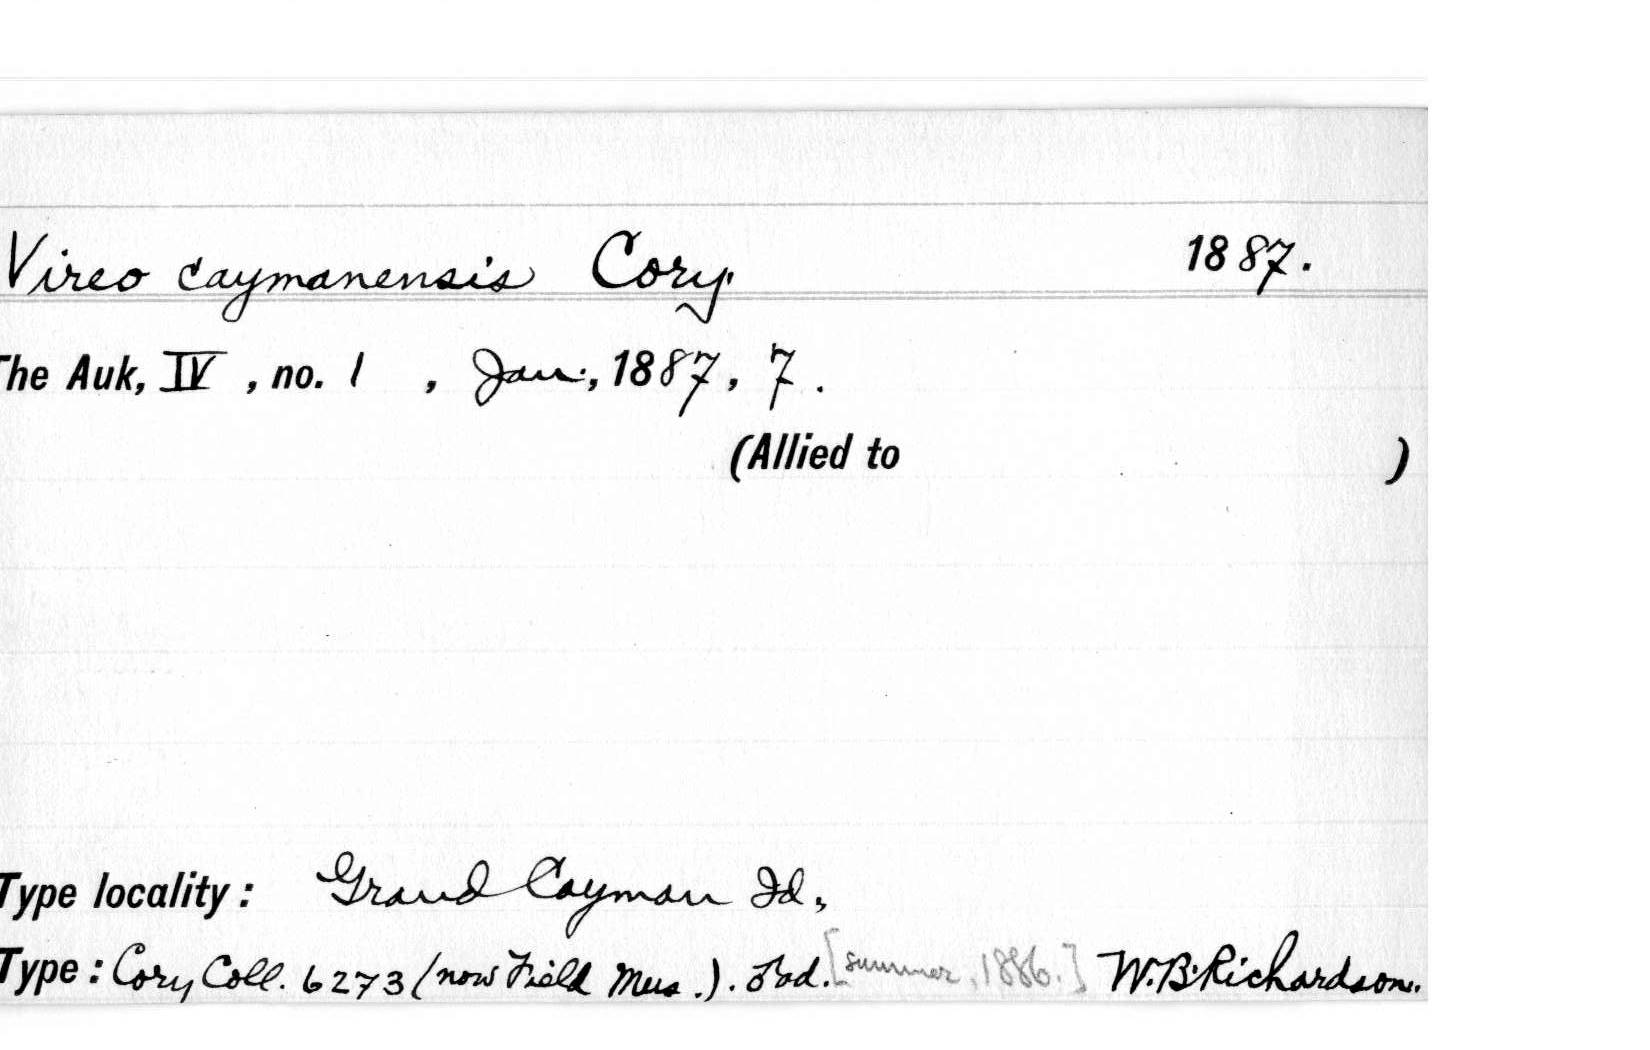 Vireo caymanensis Cory. 1887.
The Auk, IV, no. 1, Jan., 1887, 7.
(Allied to )
Type locality: Grand Cayman Id.,
Type: Cory Coll. 6273 (now Field Mus.). ad. [summer, 1886.] W.B. Richardson.